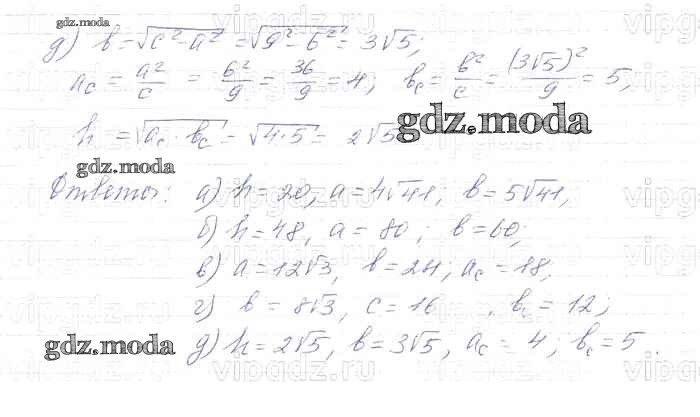 gdz.moda
д) b = √(c² - a²) = √(9² - 6²) = 3√5;
a_c = a²/c = 6²/9 = 36/9 = 4; b_c = b²/c = (3√5)²/9 = 5,
h = √(a_c · b_c) = √(4·5) = 2√5
gdz.moda
gdz.moda
Ответы: а) h = 20, a = 4√41; b = 5√41,
б) h = 48, a = 80; b = 60;
в) a = 12√3, b = 24; a_c = 18,
г) b = 8√3, c = 16, b_c = 12;
gdz.moda
д) h = 2√5, b = 3√5, a_c = 4; b_c = 5.
vipgdz.ru